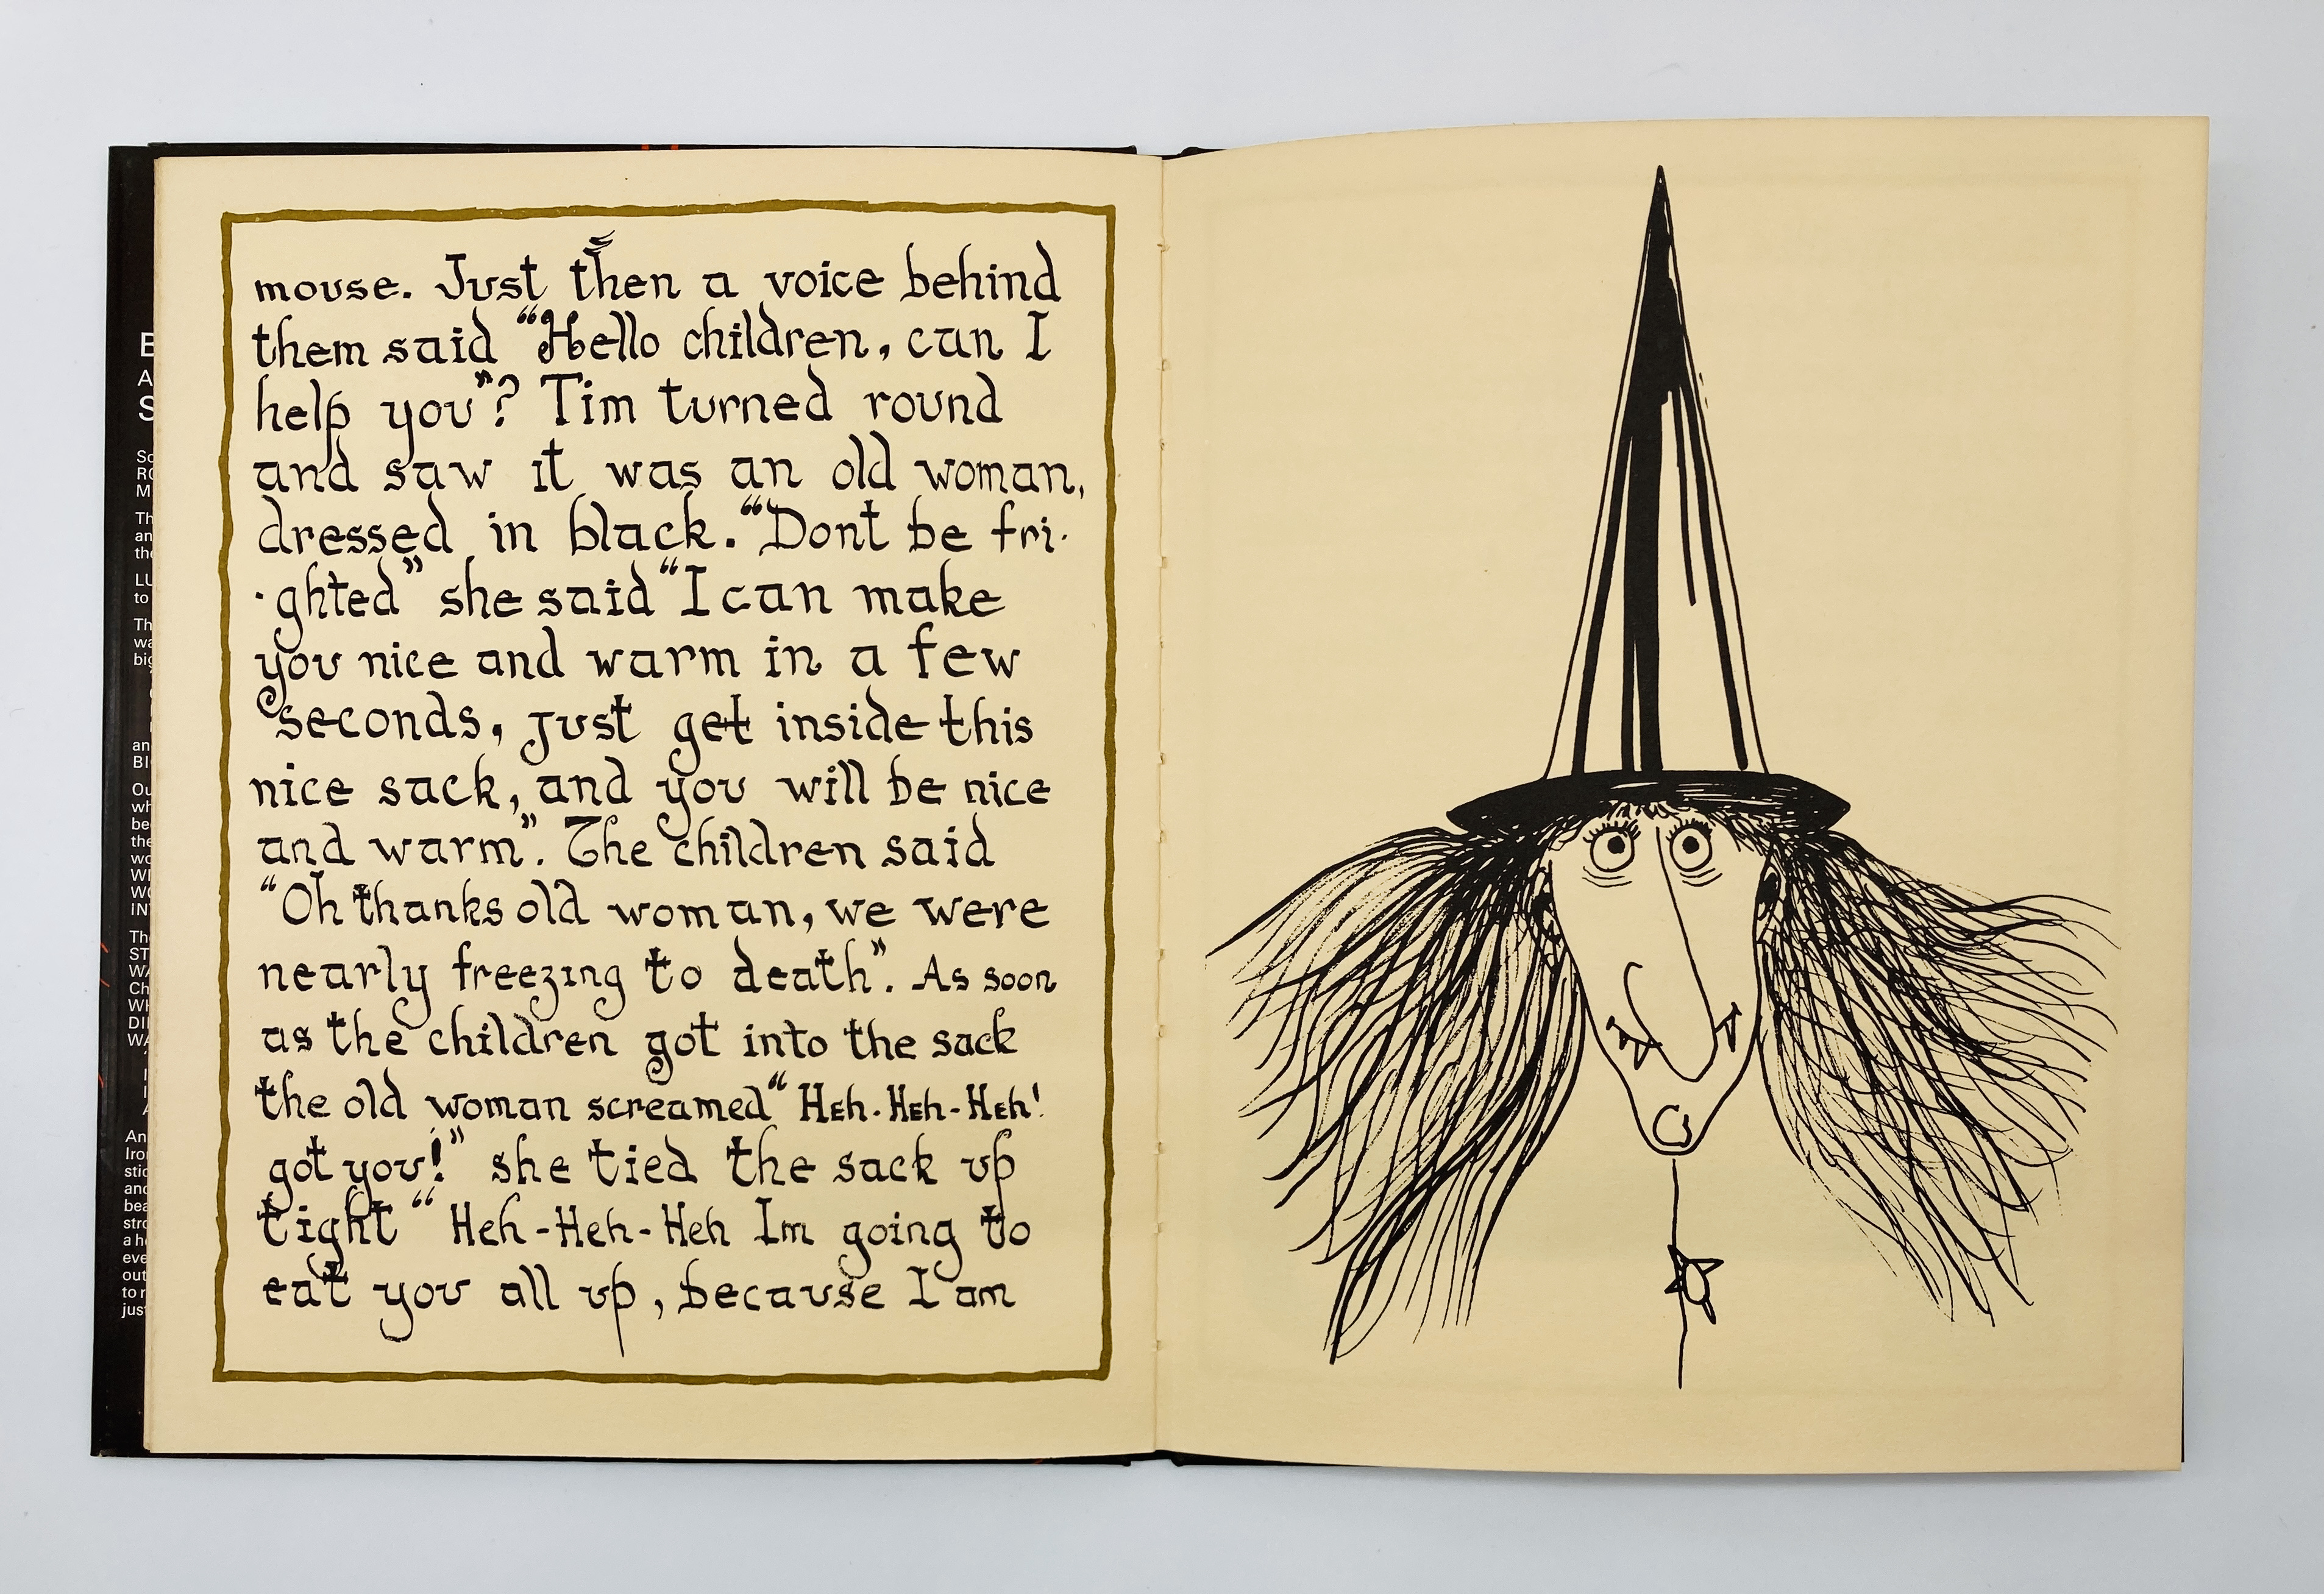 mouse. Just then a voice behind
them said “Hello children, can I
help you”? Tim turned round
and saw it was an old woman,
dressed in black. “Dont be fri-
-ghted” she said “I can make
you nice and warm in a few
seconds, just get inside this
nice sack, and you will be nice
and warm”. The children said
“Oh thanks old woman, we were
nearly freezing to death”. As soon
as the children got into the sack
the old woman screamed “Heh-Heh-Heh!
got you!” she tied the sack up
tight “Heh-Heh-Heh Im going to
eat you all up, because I am